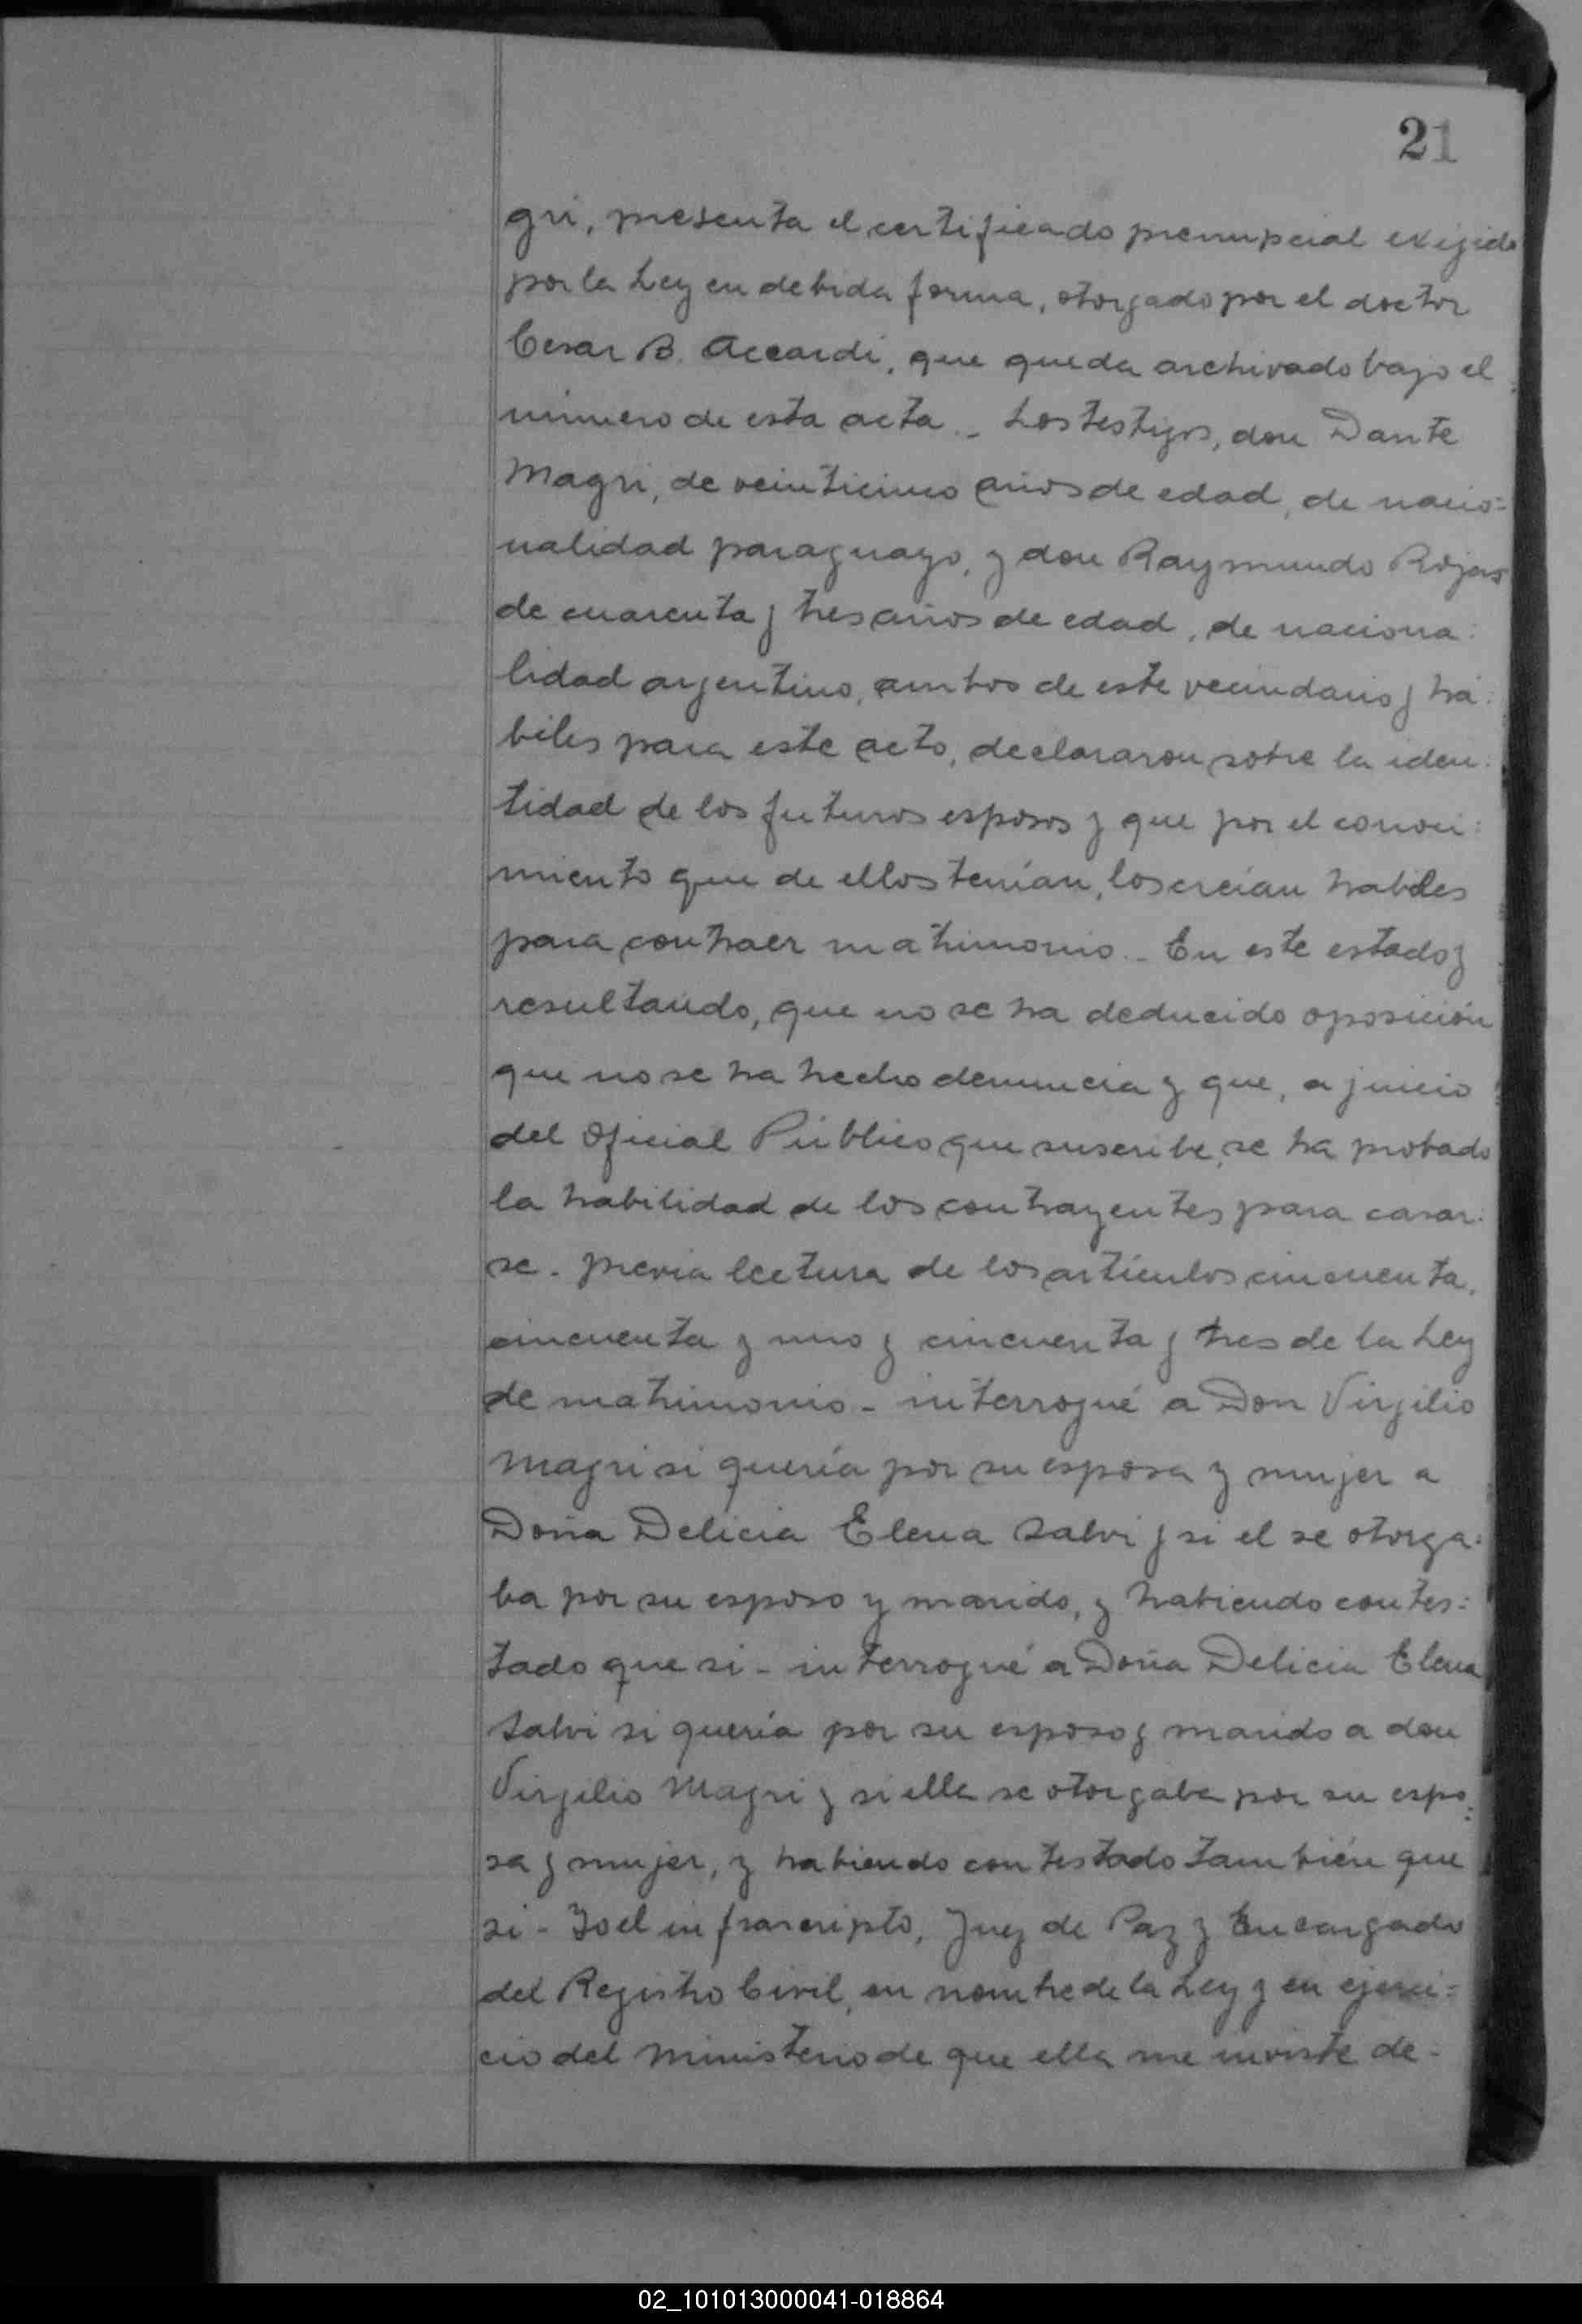 21
gri, presenta el certificado prenupcial exijido
por la Ley en debida forma, otorgado por el doctor
Cesar B. Accardi, que queda archivado bajo el
número de esta acta.- Los testigos, don Dante
Magri, de veinticinco años de edad, de nacio=
nalidad paraguayo, y don Raymundo Rojas
de cuarenta y tres años de edad, de naciona:
lidad argentino, ambos de este vecindario y há:
biles para este acto, declararon sobre la iden:
tidad de los futuros esposos y que por el conoci:
miento que de ellos tenían, los creían habiles
para contraer matrimonio.- En este estado y
resultando, que no se ha deducido oposición
que no se ha hecho denuncia y que, a juicio
del Oficial Público que suscribe, se ha probado
la habilidad de los contrayentes para casar:
se - previa lectura de los artículos cincuenta,
cincuenta y uno y cincuenta y tres de la Ley
de matrimonio - interrogué a Don Virgilio
Magri si quería por su esposa y mujer a
Doña Delicia Elena Salvi y si el se otorga:
ba por su esposo y marido, y habiendo contes:
tado que si - interrogué a Doña Delicia Elena
Salvi si quería por su esposo y marido a don
Virgilio Magri y si ella se otorgaba por su espo:
sa y mujer, y habiendo contestado también que
si - Yo el infrascripto, Juez de Paz y Encargado
del Registro Civil, en nombre de la Ley y en ejerci=
cio del ministerio de que ella me inviste de-
02_101013000041-018864